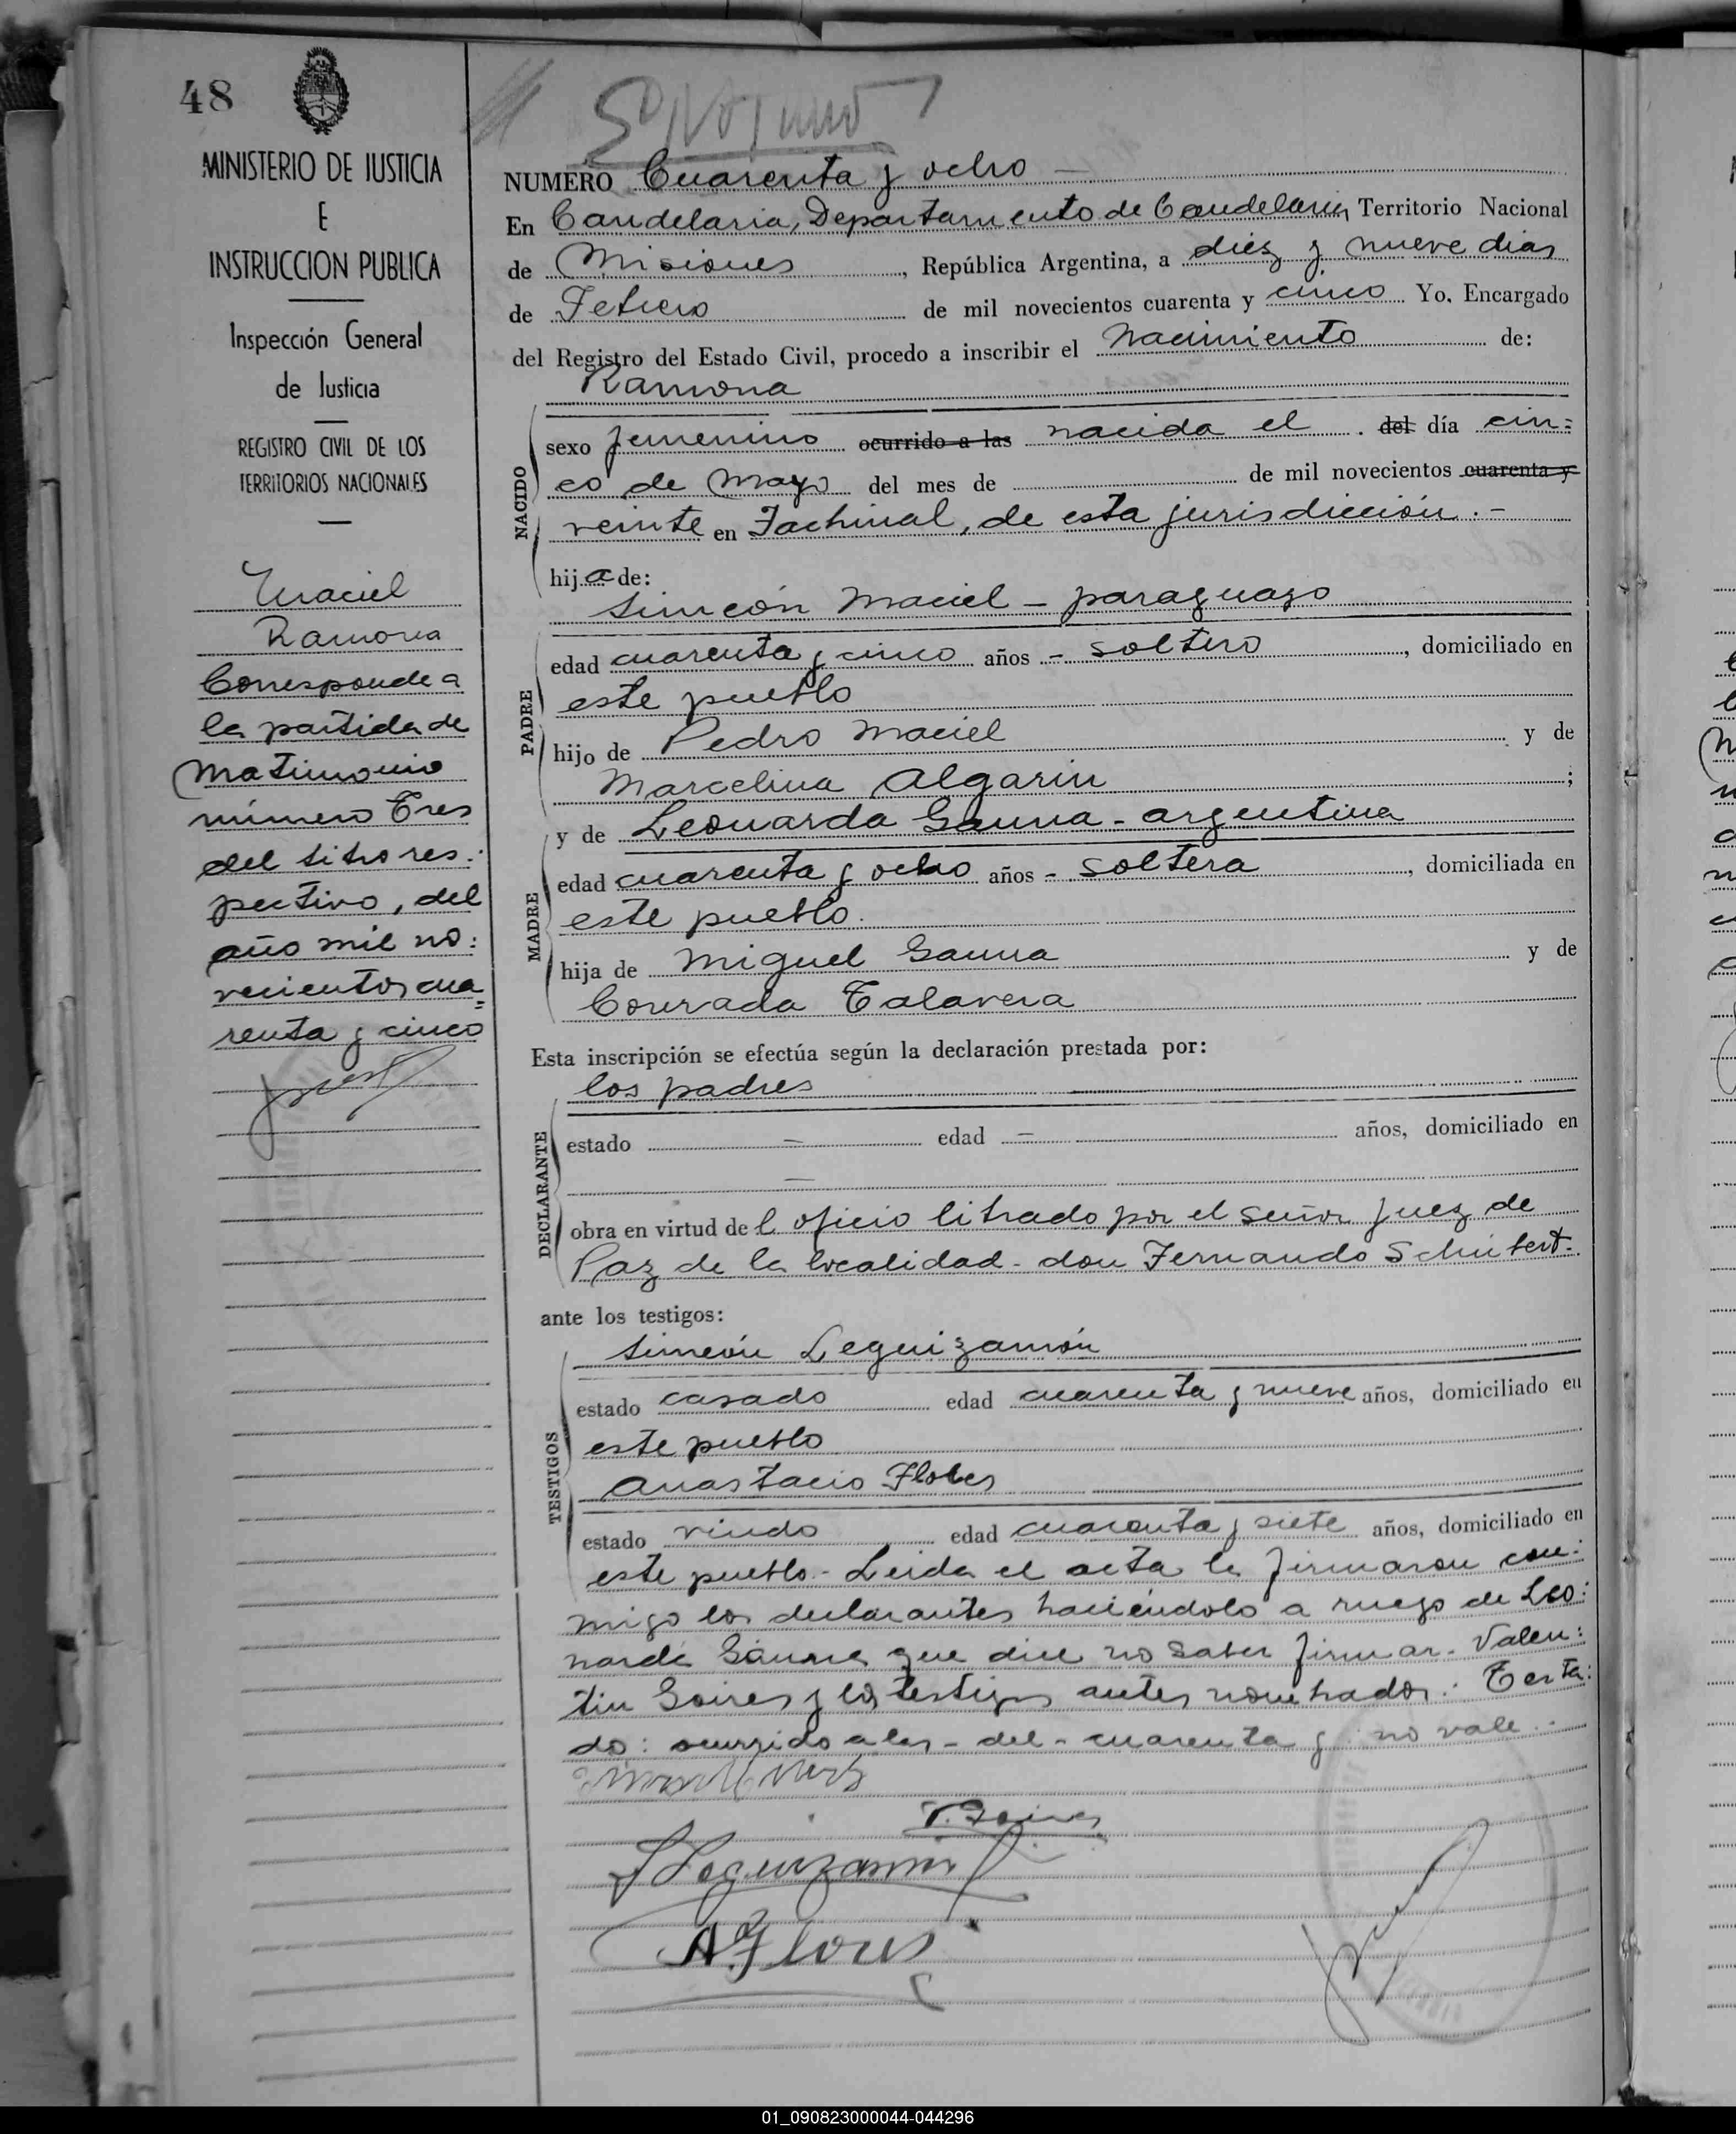 48
MINISTERIO DE JUSTICIA
E
INSTRUCCION PUBLICA
Inspección General
de Justicia
REGISTRO CIVIL DE LOS
TERRITORIOS NACIONALES
Maciel
Ramona
Corresponde a
la partida de
Matrimonio
número Tres
del libro res:
pectivo, del
año mil no:
vecientos cua
=
renta y cinco
NUMERO Cuarenta y ocho —
En Candelaria, Departamento de Candelaria, Territorio Nacional
de Misiones, República Argentina, a diez y nueve dias
de Febrero de mil novecientos cuarenta y cinco Yo, Encargado
del Registro del Estado Civil, procedo a inscribir el nacimiento de:
Ramona
NACIDO
sexo femenino ocurrido a las nacida el del día cin=
co de Mayo del mes de de mil novecientos cuarenta y
veinte en Fachinal, de esta jurisdicción.-
hija de:
PADRE
Simeón Maciel - paraguayo
edad cuarenta y cinco años - soltero, domiciliado en
este pueblo
hijo de Pedro Maciel y de
Marcelina Algarin ;
MADRE
y de Leonarda Gauna - argentina
edad cuarenta y ocho años - soltera, domiciliada en
este pueblo.
hija de Miguel Gauna y de
Conrada Talavera
Esta inscripción se efectúa según la declaración prestada por:
DECLARANTE
los padres
estado — edad — años, domiciliado en
—
obra en virtud del oficio librado por el señor Juez de
Paz de la localidad - don Fernando Schubert-.
ante los testigos:
TESTIGOS
Simeón Leguizamón
estado casado edad cuarenta y nueve años, domiciliado en
este pueblo
Anastacio Flores
estado viudo edad cuarenta y siete años, domiciliado en
este pueblo.- Leida el acta la firmaron con:
migo los declarantes haciéndolo a ruego de Leo:
narda Gauna que dice no saber firmar. Valen:
tin Goires y los testigos antes nombrados.: Testa:
do: ocurrido a las - del - cuarenta y no vale.-
V. Goires
S Leguizamon
A. Flores
01_090823000044-044296